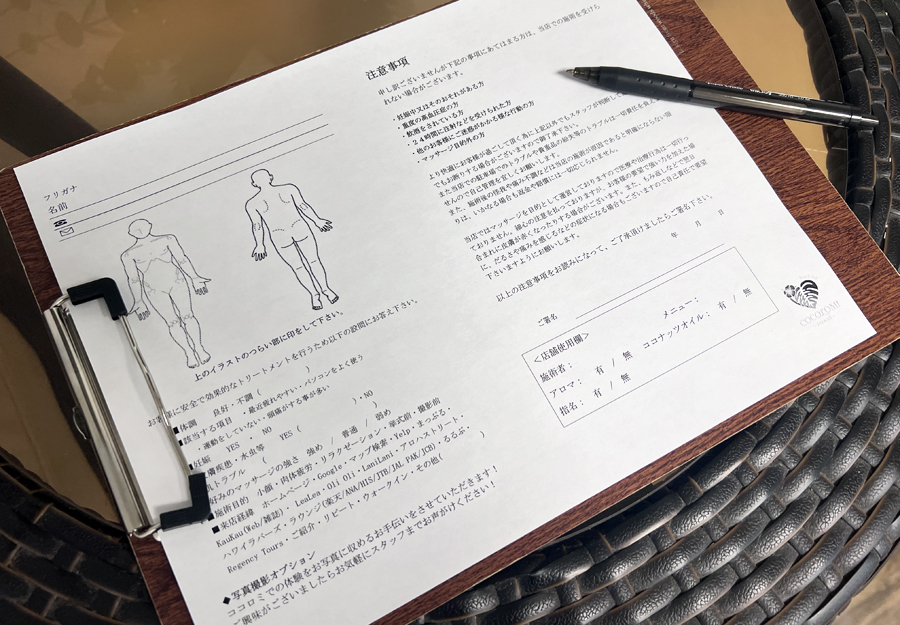 フリガナ
名前
上のイラストのつらい部に印をして下さい。
に安全で効果的なトリートメントを行うため以下の設問にお答え下さい。
体調 良好・不調 ( )
該当する項目 ・最近疲れやすい・パソコンをよく使う
・運動をしていない・頭痛がする事が多い
妊娠 YES ・ NO
膚疾患・水虫等 YES ( )・NO
トラブル ( )
好みのマッサージの強さ 強め / 普通 / 弱め
■施術目的 小顔・肉体疲労・リラクゼーション・挙式前・撮影前
■来店経緯 ホームページ・Google・マップ検索・Yelp・まっぷる・
KauKau(Web/雑誌)・LeaLea・Oli Oli・LaniLani・アロハストリート・
ハワイラバーズ・ラウンジ(楽天/ANA/HIS/JTB/JAL PAK/JCB)・るるぶ・
Regency Tours・ご紹介・リピート・ウォークイン・その他( )
◆写真撮影オプション
ココロミでの体験をお写真に収めるお手伝いをさせていただきます!
ご興味がございましたらお気軽にスタッフまでお声がけください!
注意事項
申し訳ございませんが下記の事項にあてはまる方は、当店での施術を受けら
れない場合がございます。
・妊娠中又はそのおそれがある方
・重度の高血圧症の方
・飲酒をされている方
・24時間に注射などを受けられた方
・他のお客様にご迷惑がかかる様な行動の方
・マッサージ目的外の方
より快適にお客様が過ごして頂く為に上記以外でもスタッフが判断し
てもお断りする場合がございますので御了承下さい。
また当店での駐車場でのトラブルや貴重品の紛失等のトラブルは一切責任を
せんので自己管理を宜しくお願いします。
また、施術後の怪我や痛み不調などは当店の施術が原因であると明確にならない限
りは、いかなる場合も返金や賠償には一切応じられません。
当店ではマッサージを目的として運営しておりますので医療や治療行為は一切行っ
ておりません。細心の注意を払っておりますが、お客様の要望で強い力を加えた場
合まれに皮膚が赤くなったりする場合がございます。また、もみ返しなどで翌日
に、だるさや痛みを感じるなどの症状になる場合もございますので自己責任で要望
下さいますようにお願いします。
以上の注意事項をお読みになって、ご了承頂けましたらご署名下さい。
年 月 日
ご署名
<店舗使用欄>
施術者: メニュー:
アロマ: 有 / 無 ココナッツオイル: 有 / 無
指名: 有 / 無
COCOROMI